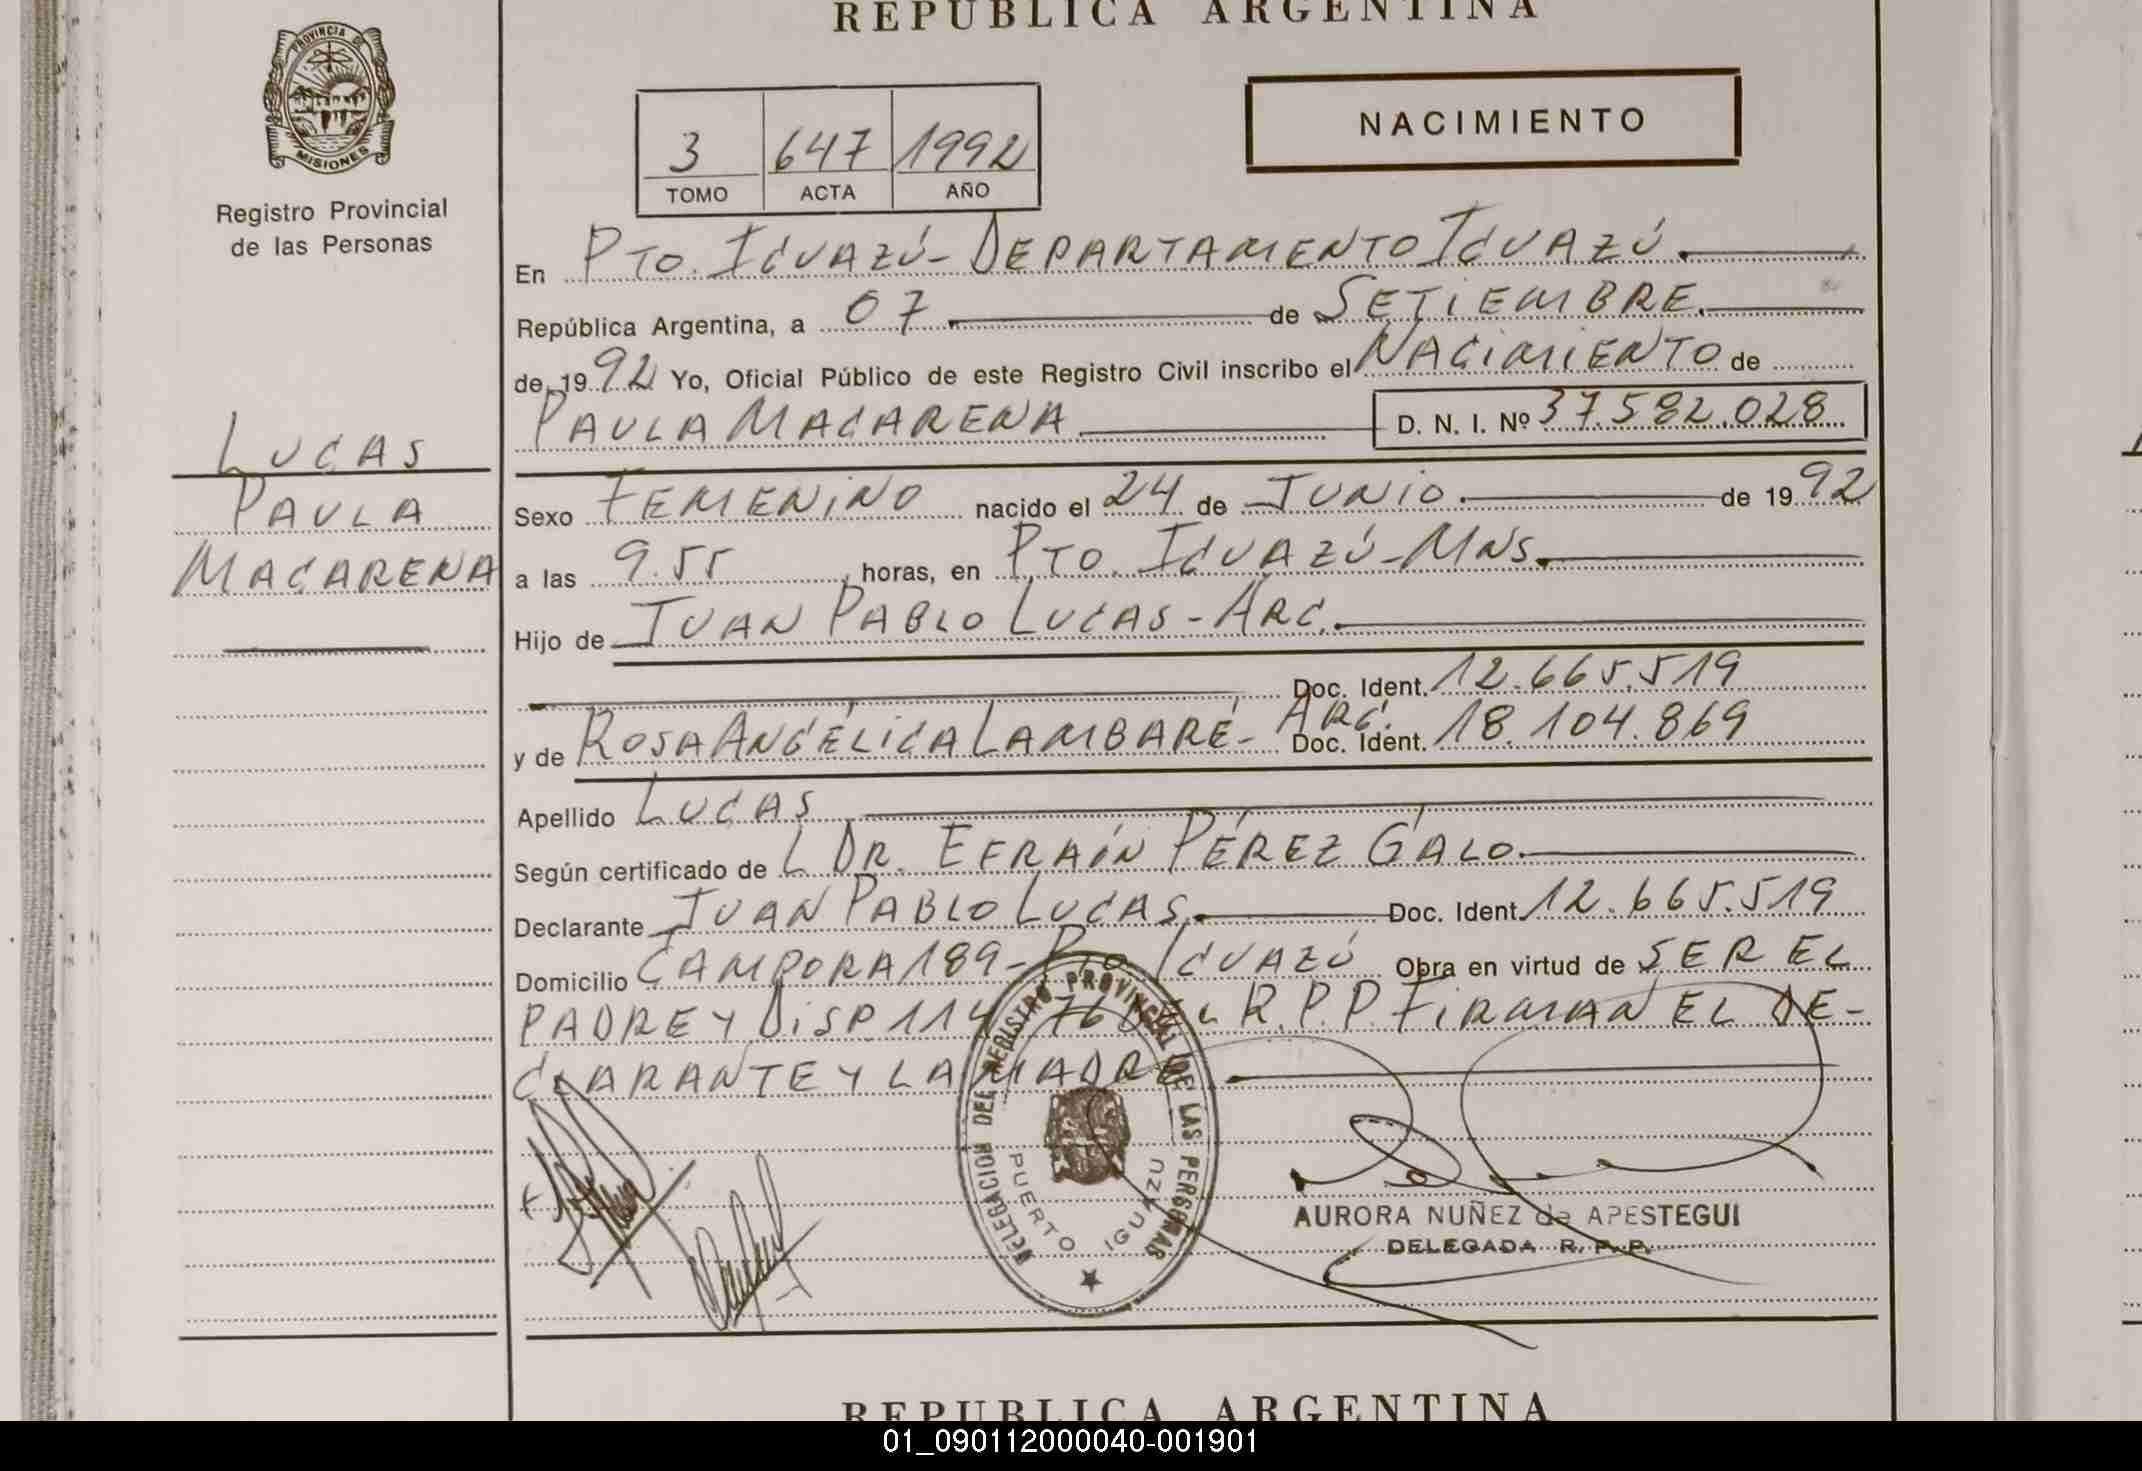 REPUBLICA ARGENTINA
PROVINCIA DE
MISIONES
Registro Provincial
de las Personas
3 647 1992
TOMO ACTA AÑO
NACIMIENTO
En PTO. IGUAZÚ - DEPARTAMENTO IGUAZÚ.
República Argentina, a 07 de SETIEMBRE.
de 1992 Yo, Oficial Público de este Registro Civil inscribo el NACIMIENTO de
PAULA MACARENA D. N. I. Nº 37.582.028
LUCAS
PAULA
MACARENA
Sexo FEMENINO nacido el 24 de JUNIO. de 1992
a las 9.55 horas, en PTO. IGUAZÚ - MNS.
Hijo de JUAN PABLO LUCAS - ARG.
Doc. Ident. 12.665.519
y de ROSA ANGÉLICA LAMBARÉ - ARG. Doc. Ident. 18.104.869
Apellido LUCAS
Según certificado de L DR. EFRAÍN PÉREZ GALO.
Declarante JUAN PABLO LUCAS. Doc. Ident. 12.665.519
Domicilio CAMPORA 189 - PTO IGUAZÚ Obra en virtud de SER EL
PADRE Y DISP 114 76 DEL R.P.P. FIRMAN EL DE-
CLARANTE Y LA MADRE
DELEGACION DEL REGISTRO PROVINCIAL DE LAS PERSONAS
PUERTO IGUAZU
AURORA NUÑEZ de APESTEGUI
DELEGADA R. P. P.
REPUBLICA ARGENTINA
01_090112000040-001901